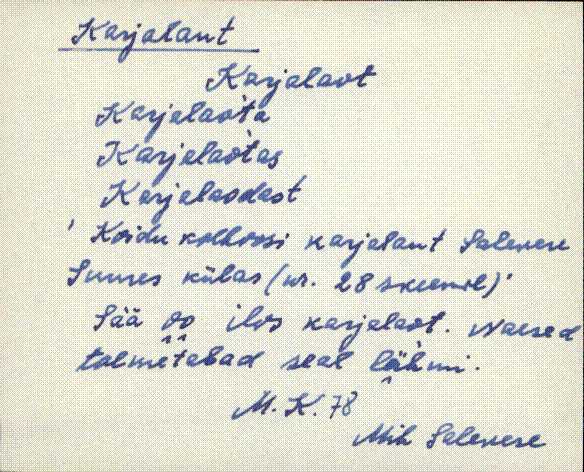 Karjalaut
Karjalaot
Karjalaota
Karjalaotas
Karjalaodast
' Koidu kolhoosi karjalaut Salevere
Suures külas (nr. 28 skeemil)'
Sää oo ilos karjalaot. Naesed
talmetabad seal lähmi.
M. K. 78
Mih Salevere